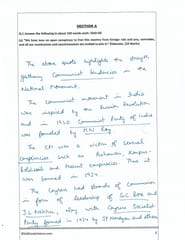 SECTION A
Q.1 Answer the following in about 150 words each. 10x5=50
(a) "We have now an open conspiracy to free this country from foreign rule and you, comrades, and all our countrymen and countrywomen are invited to join it." (Nationalism, 10 Marks)
The above quote highlights the
Communist tendencies in the
National Movement.
The communist movement in India
was inspired by the Russian Revolution
and in 1920 Communist Party of India
was founded by MN Roy
The CPI was a victim of several
conspiracies such as Peshawar, Kanpur
and Meerut conspiracies. This it
was banned in 1934
The Congress had strands of communism
in form of leadership of SC Bose and
JL Nehru, along with Congress Socialist
Party formed in 1934 by JP Narayan and others